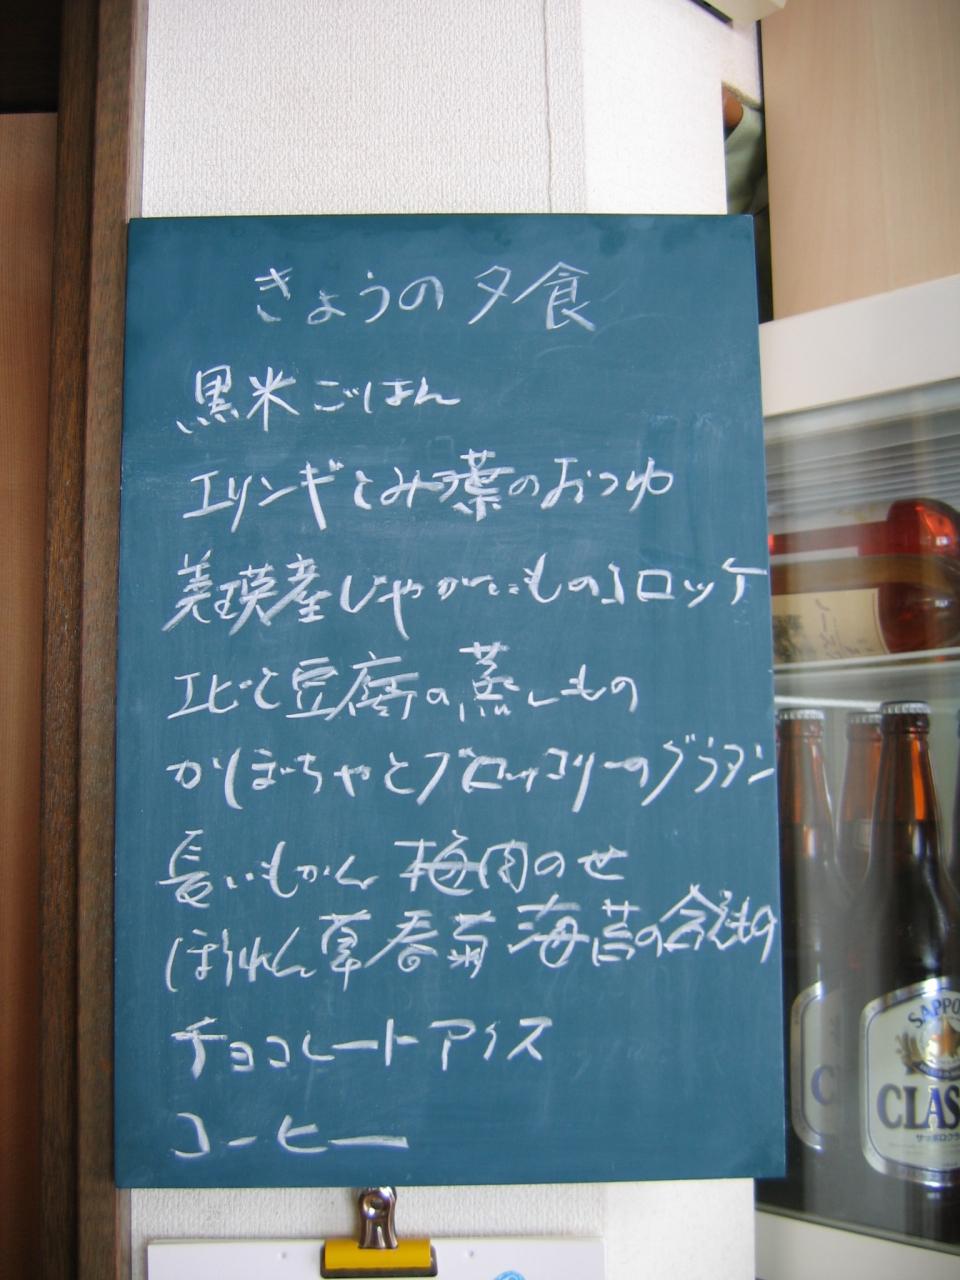 きょうの夕食
黒米ごはん
エリンギとみつ葉のおつゆ
美瑛産じゃがいものコロッケ
エビと豆腐の蒸しもの
かぼちゃとブロッコリーのグラタン
長いもかん 梅肉のせ
ほうれん草春菊海苔の合えもの
チョコレートアイス
コーヒー
SAPPO
CLAS
サッポロクラ